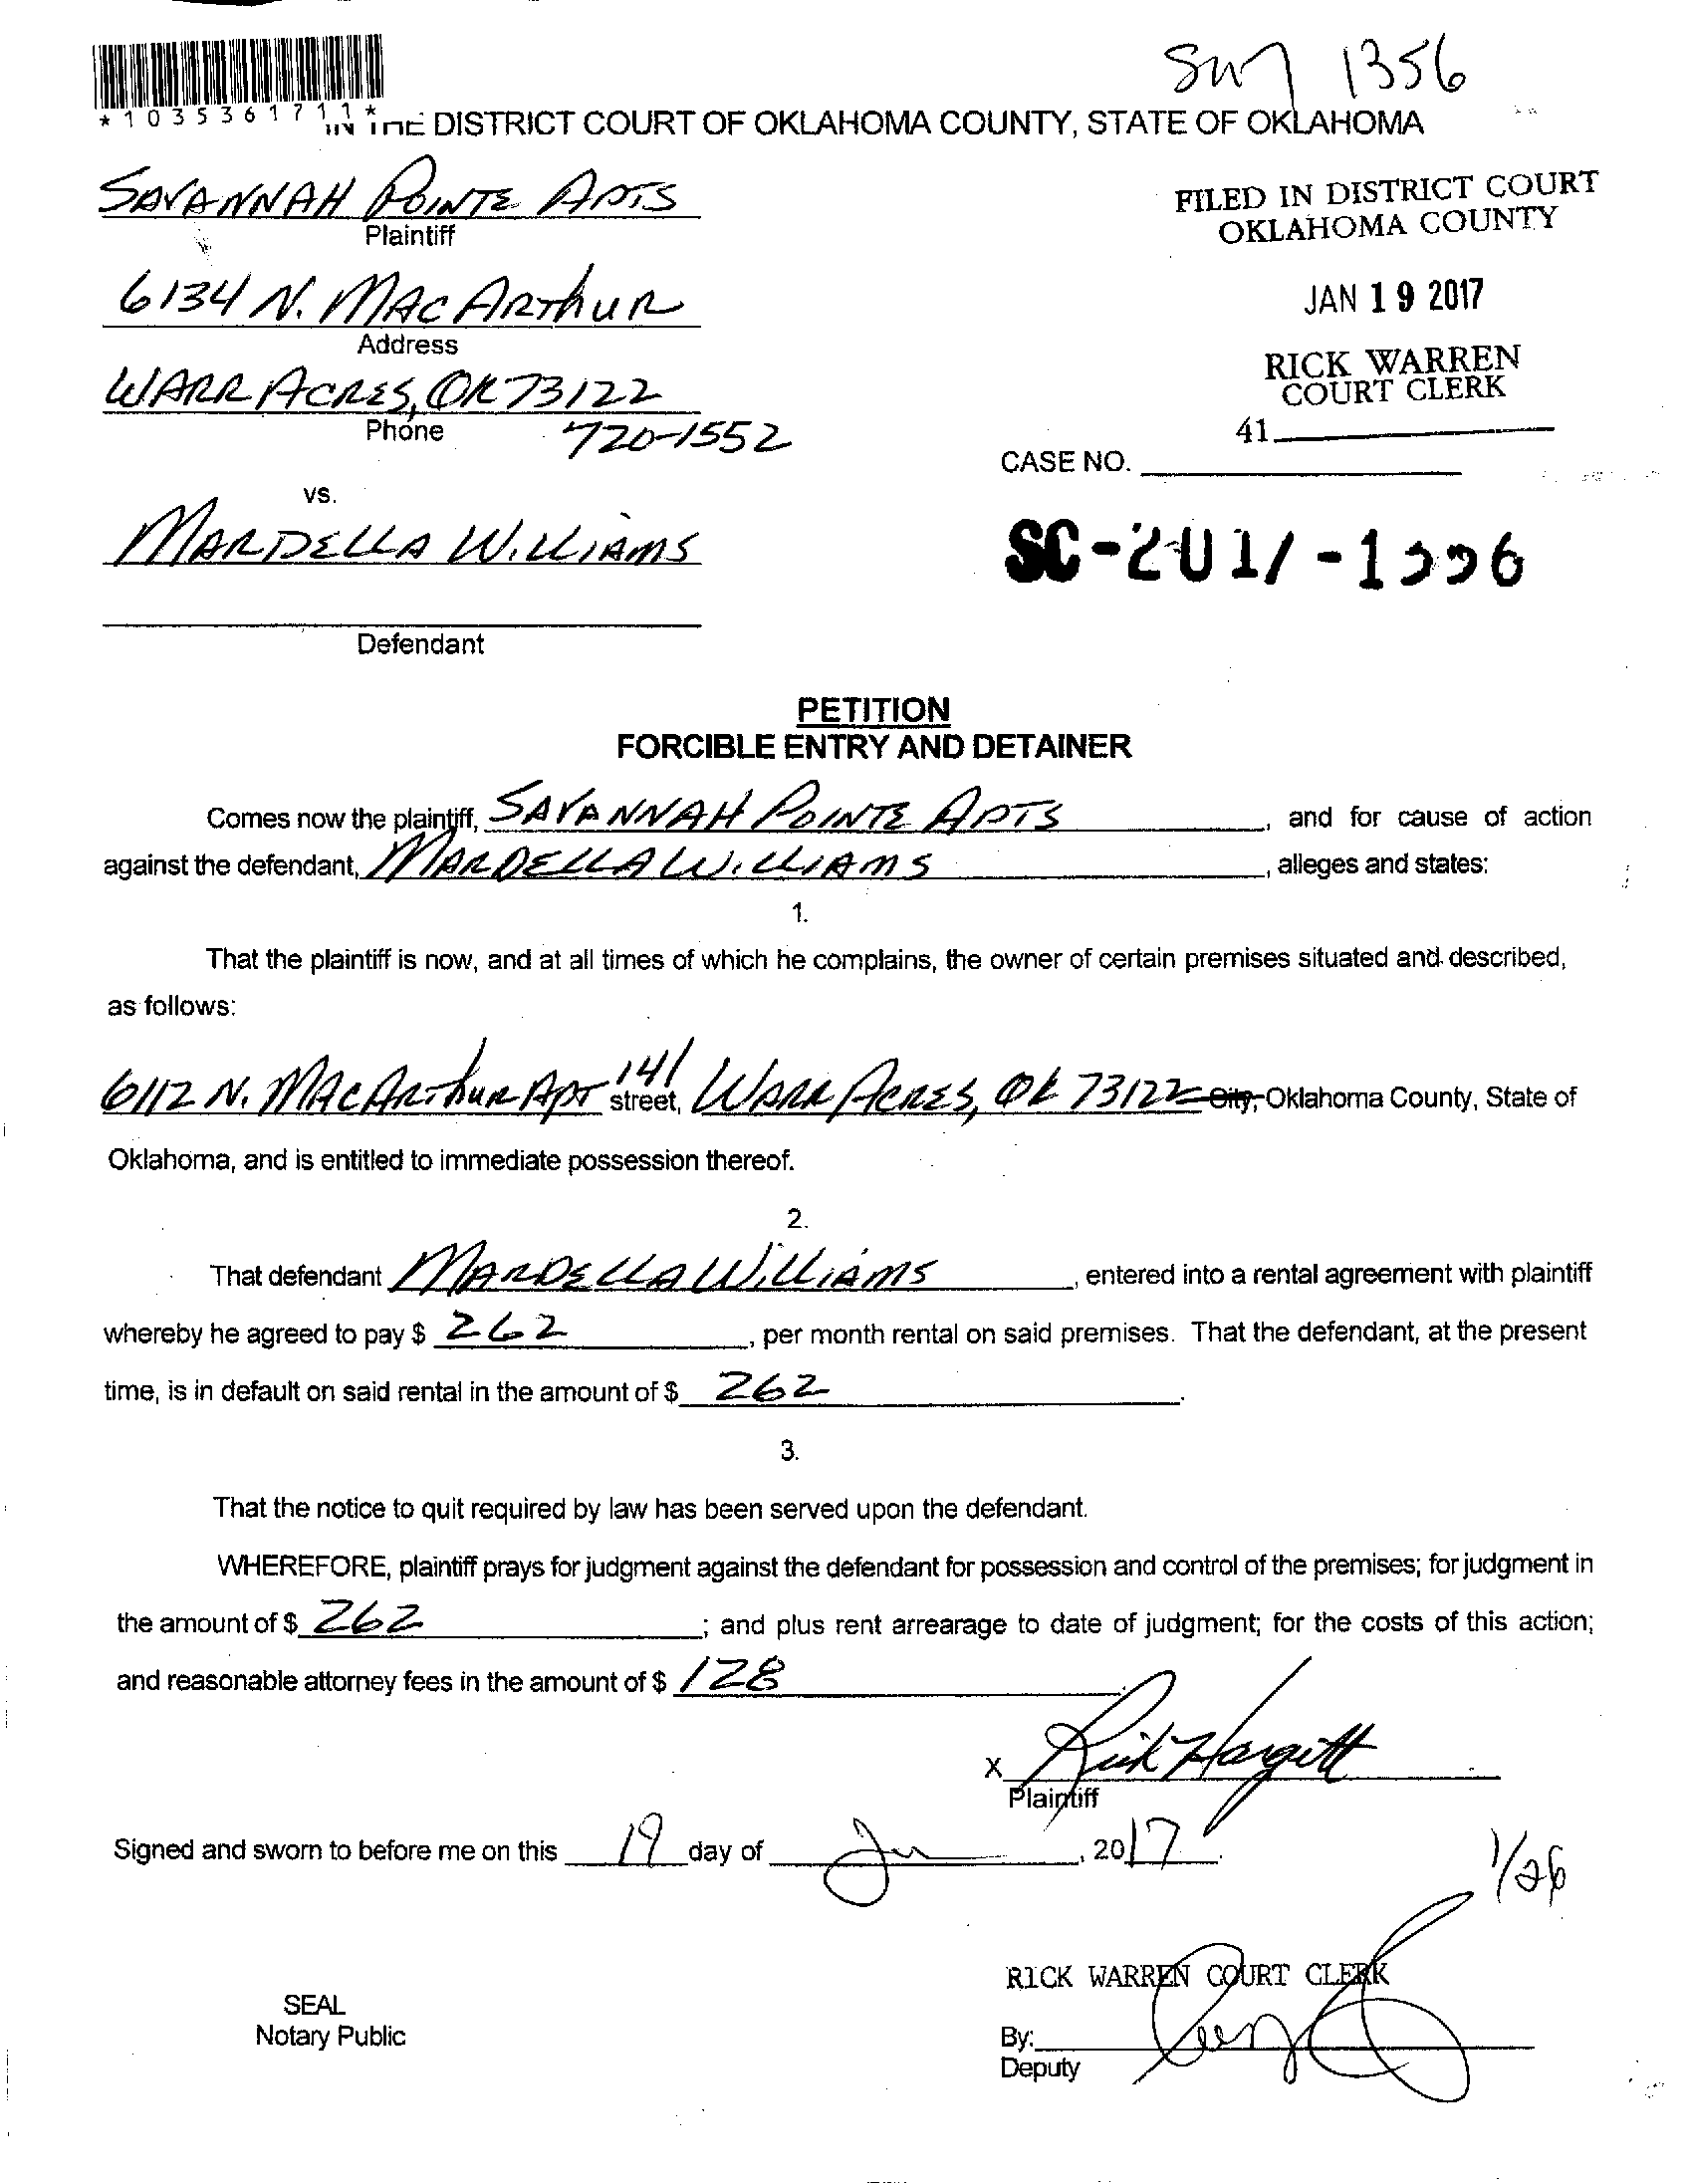 1356
*1035361711*
IN THE DISTRICT COURT OF OKLAHOMA COUNTY, STATE OF OKLAHOMA
SAVANNAH POINTE APTS
Plaintiff
FILED IN DISTRICT COURT
OKLAHOMA COUNTY
6134 N. MACARTHUR
Address
JAN 19 2017
RICK WARREN
COURT CLERK
WARR ACRES, OK 73122
Phone 720-1552
41
CASE NO.
vs.
MARDELLA WILLIAMS
SC-2017-1
Defendant
PETITION
FORCIBLE ENTRY AND DETAINER
Comes now the plaintiff, SAVANNAH POINTE APTS, and for cause of action
against the defendant, MARDELLA WILLIAMS, alleges and states:
1.
That the plaintiff is now, and at all times of which he complains, the owner of certain premises situated and described,
as follows:
6112 N. MACARTHUR APT 141 street, WARR ACRES, OK 73122 City, Oklahoma County, State of
Oklahoma, and is entitled to immediate possession thereof.
2.
That defendant MARDELLA WILLIAMS, entered into a rental agreement with plaintiff
whereby he agreed to pay $ 262, per month rental on said premises. That the defendant, at the present
time, is in default on said rental in the amount of $ 262.
3.
That the notice to quit required by law has been served upon the defendant.
WHEREFORE, plaintiff prays for judgment against the defendant for possession and control of the premises; for judgment in
the amount of $ 262; and plus rent arrearage to date of judgment; for the costs of this action;
and reasonable attorney fees in the amount of $ 128.
X Rick Hargitt
Plaintiff
Signed and sworn to before me on this 19 day of Jan, 2017.
1/26
RICK WARREN COURT CLERK
SEAL
Notary Public
By:
Deputy